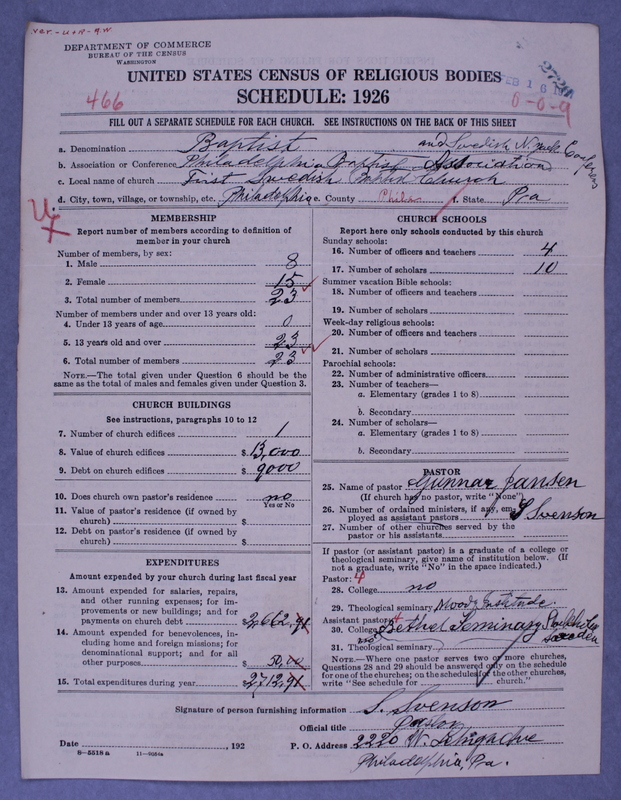 ver - u+r - q.w.
DEPARTMENT OF COMMERCE
BUREAU OF THE CENSUS
WASHINGTON
UNITED STATES CENSUS OF RELIGIOUS BODIES
FEB 16
466
SCHEDULE: 1926
0-0-9
FILL OUT A SEPARATE SCHEDULE FOR EACH CHURCH. SEE INSTRUCTIONS ON THE BACK OF THIS SHEET
a. Denomination Baptist
and Swedish N. Conference
b. Association or Conference Philadelphia Baptist Association
c. Local name of church First Swedish Baptist Church
d. City, town, village, or township, etc. Philadelphia e. County Phila f. State Pa
MEMBERSHIP
Report number of members according to definition of
member in your church
Number of members, by sex:
1. Male 8
2. Female 15
3. Total number of members 23
Number of members under and over 13 years old:
4. Under 13 years of age 0
5. 13 years old and over 23
6. Total number of members 23
NOTE.—The total given under Question 6 should be the
same as the total of males and females given under Question 3.
CHURCH BUILDINGS
See instructions, paragraphs 10 to 12
7. Number of church edifices 1
8. Value of church edifices $ 13,000
9. Debt on church edifices $ 9000
10. Does church own pastor's residence no
Yes or No
11. Value of pastor's residence (if owned by
church) $
12. Debt on pastor's residence (if owned by
church) $
EXPENDITURES
Amount expended by your church during last fiscal year
13. Amount expended for salaries, repairs,
and other running expenses; for im-
provements or new buildings; and for
payments on church debt $2,662,91
14. Amount expended for benevolences, in-
cluding home and foreign missions; for
denominational support; and for all
other purposes $ 50,00
15. Total expenditures during year $2712,91
CHURCH SCHOOLS
Report here only schools conducted by this church
Sunday schools:
16. Number of officers and teachers 4
17. Number of scholars 10
Summer vacation Bible schools:
18. Number of officers and teachers
19. Number of scholars
Week-day religious schools:
20. Number of officers and teachers
21. Number of scholars
Parochial schools:
22. Number of administrative officers
23. Number of teachers—
a. Elementary (grades 1 to 8)
b. Secondary
24. Number of scholars—
a. Elementary (grades 1 to 8)
b. Secondary
PASTOR
25. Name of pastor Gunnar Jansen
(If church has no pastor, write "None")
26. Number of ordained ministers, if any, em-
ployed as assistant pastors S Svenson
27. Number of other churches served by the
pastor or his assistants
If pastor (or assistant pastor) is a graduate of a college or
theological seminary, give name of institution below. (If
not a graduate, write "No" in the space indicated.)
Pastor: 4
28. College no
29. Theological seminary Moody Institute
Assistant pastor: 4
30. College Bethel Seminary Stockholm
Sweden
31. Theological seminary
NOTE.—Where one pastor serves two or more churches,
Questions 28 and 29 should be answered only on the schedule
for one of the churches; on the schedules for the other churches,
write "See schedule for church."
Signature of person furnishing information S. Svenson
Official title Pastor
Date , 192 P. O. Address 2220 W. Lehigh Ave
8-5518 a
Philadelphia, Pa.